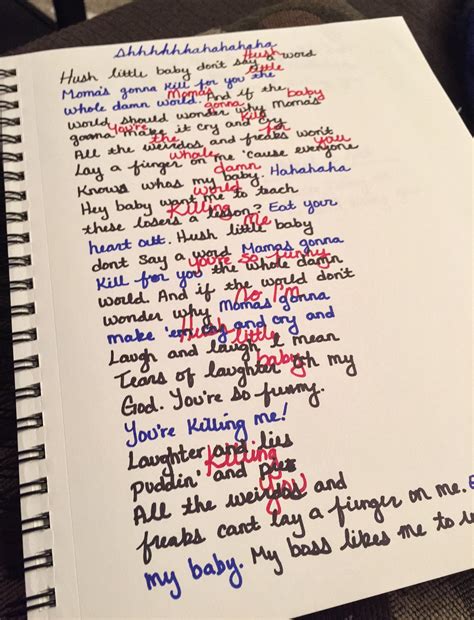 Shhhhhhahahahaha
Hush
Hush little baby don't say a word
little
Momas gonna Kill for you the
Moma's baby
whole damn world. And if the
gonna Kill
world should wonder why Momas
You're for
gonna make it cry and cry
the you
All the weirdos and freaks won't
whole
Lay a fiunger on me 'cause everyone
damn
Knows whos my baby. Hahahaha
world
Hey baby want me to teach
Killing
these losers a lesson? Eat your
Me
heart out. Hush little baby
dont Say a word Mamas gonna
you're so funny
Kill for you the whole damn
world. And if the world don't
No I'm
wonder why Momas gonna
make 'em cry and cry and
Hush little
Laugh and laugh I mean
baby
Tears of laughter oh my
God. You're so funny.
You're Killing me!
Laughter and lies
Killing
Puddin' and pies
you
All the weirdos and
freaks cant lay a fiunger on me.
my baby. My boss likes me to